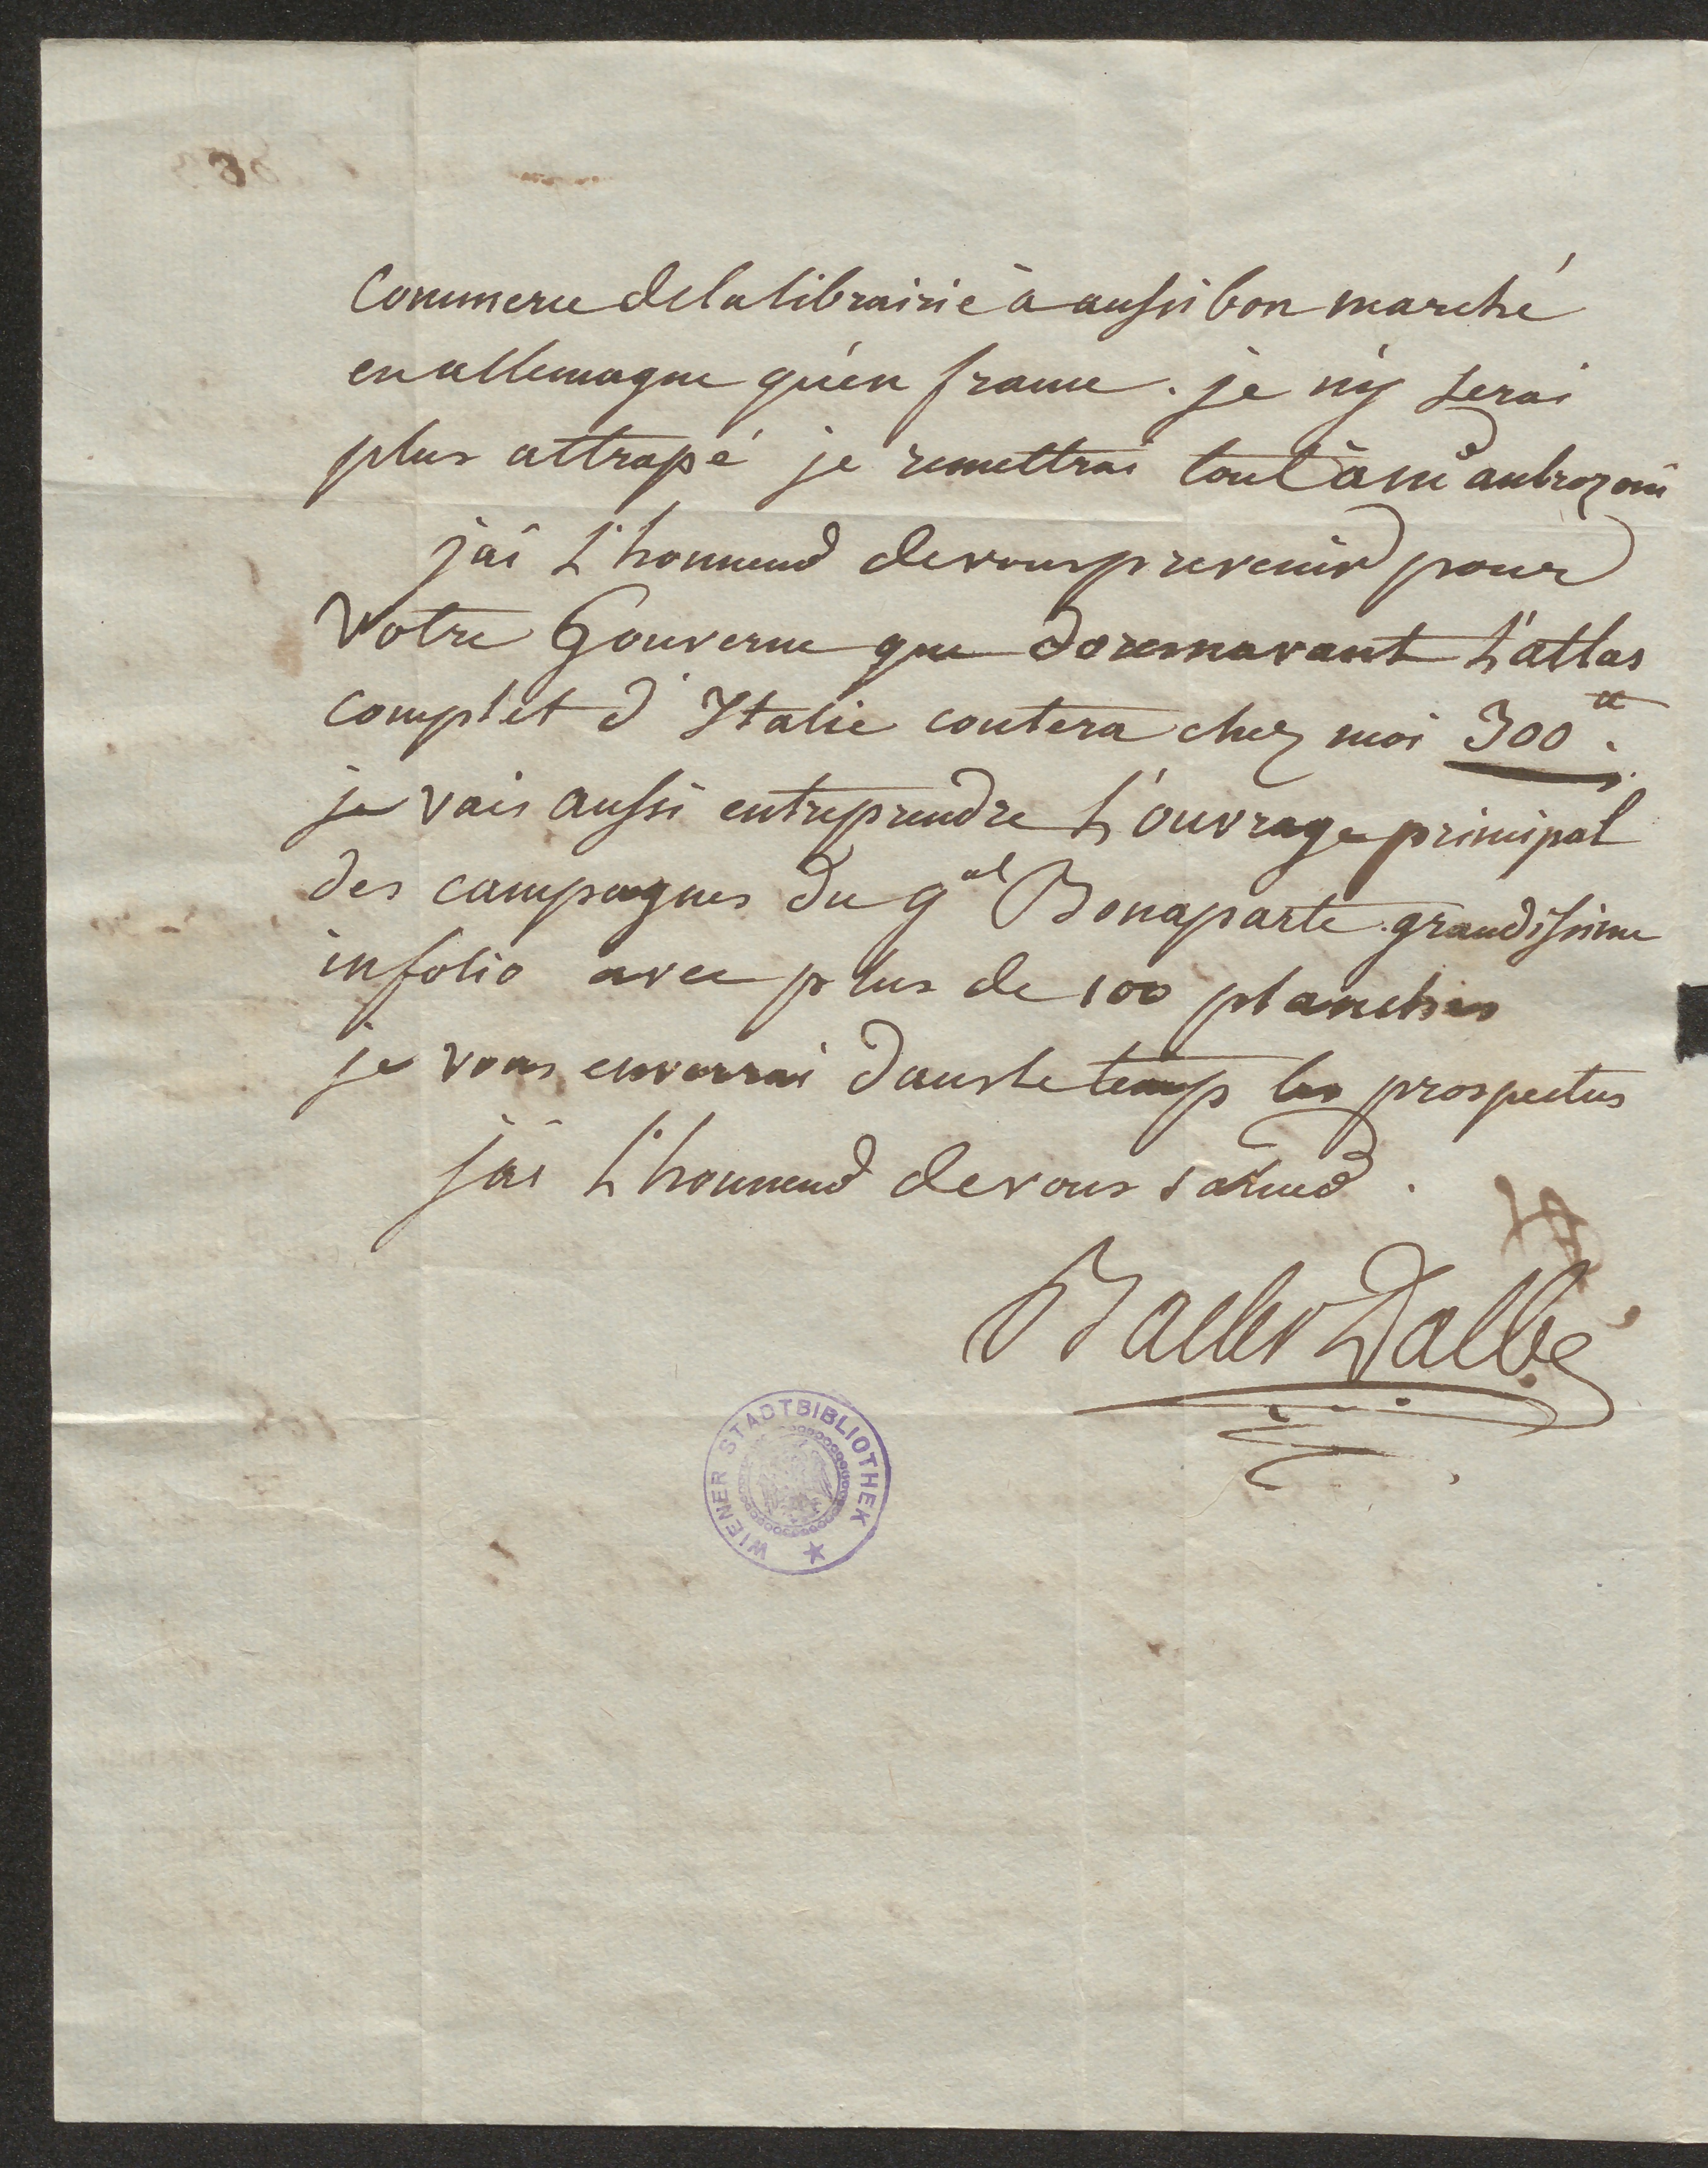 Commerce de la librairie à aussi bon marché
en allemagne qu'én france. je n'y serai
plus attrapé je remettrai tout à mr
jai L'honneur de vous prevenir pour
Votre Gouverne que doresnavant L'atlas
complet d'Italie coutera chez moi 300tt.
je vais aussi entreprendre L'ouvrage principal
des campagnes du gal Bonaparte grandissime
infolio avec plus de 100 planches
je vous enverrai dans le temps les prospectus
jai L'honneur de vous saluer.
Bacler Dalbe
WIENER STADTBIBLIOTHEK